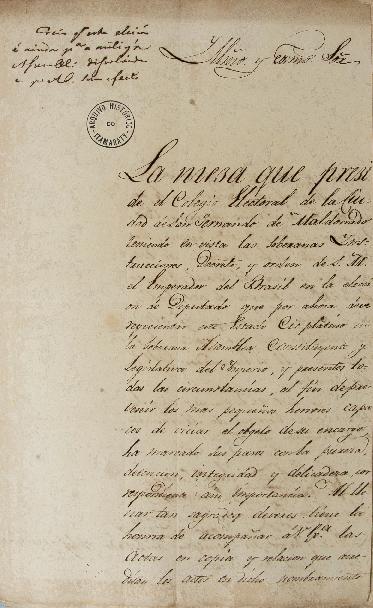 ARQUIVO HISTORICO
DO
ITAMARATY
Illmo. y exmo. Sor.
La mesa que presi
de el Colegio Electoral de la Ciu
dad de San Fernando de Maldonado
teniendo en vista las soberanas Ins
trucciones, Decreto, y orden de S. M.
el Emperador del Brasil en la elecci
on de Diputado que por ahora deve
representar este Estado Cisplatino en
la soberana Asamblea Constituyente y
Legislativa del Imperio, y presentes to
das las circunstancias, al fin de pre
venir los mas pequeños herrores capa
ces de viciar el objeto de su encargo
ha marcado sus pasos con la pureza,
detencion, integridad y delicadeza cor
respondiente a su importancia. Al lle
nar tan sagrados deveres tiene la
honrra de acompañar a V. Exa. las
Actas en copia y relacion que acre
ditan los actos en dicho nombramiento